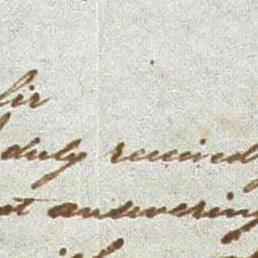 Sir
duly received
answering